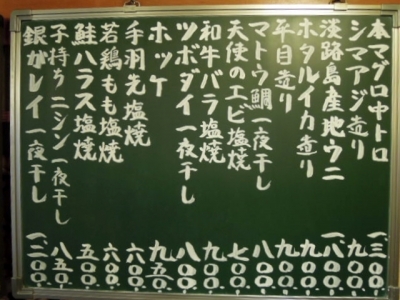 本マグロ中トロ 一、三〇〇
シマアジ造り 九〇〇
淡路島産地ウニ 一、八〇〇
ホタルイカ造り 九〇〇
平目造り 九〇〇
マトウ鯛一夜干し 八〇〇
天使のエビ塩焼 七〇〇
和牛バラ塩焼 九〇〇
ツボダイ一夜干し 八〇〇
ホッケ 九五〇
手羽先塩焼 六〇〇
若鶏もも塩焼 六〇〇
鮭ハラス塩焼 五〇〇
子持ちニシン一夜干し 八五〇
銀がレイ一夜干し 一、二〇〇